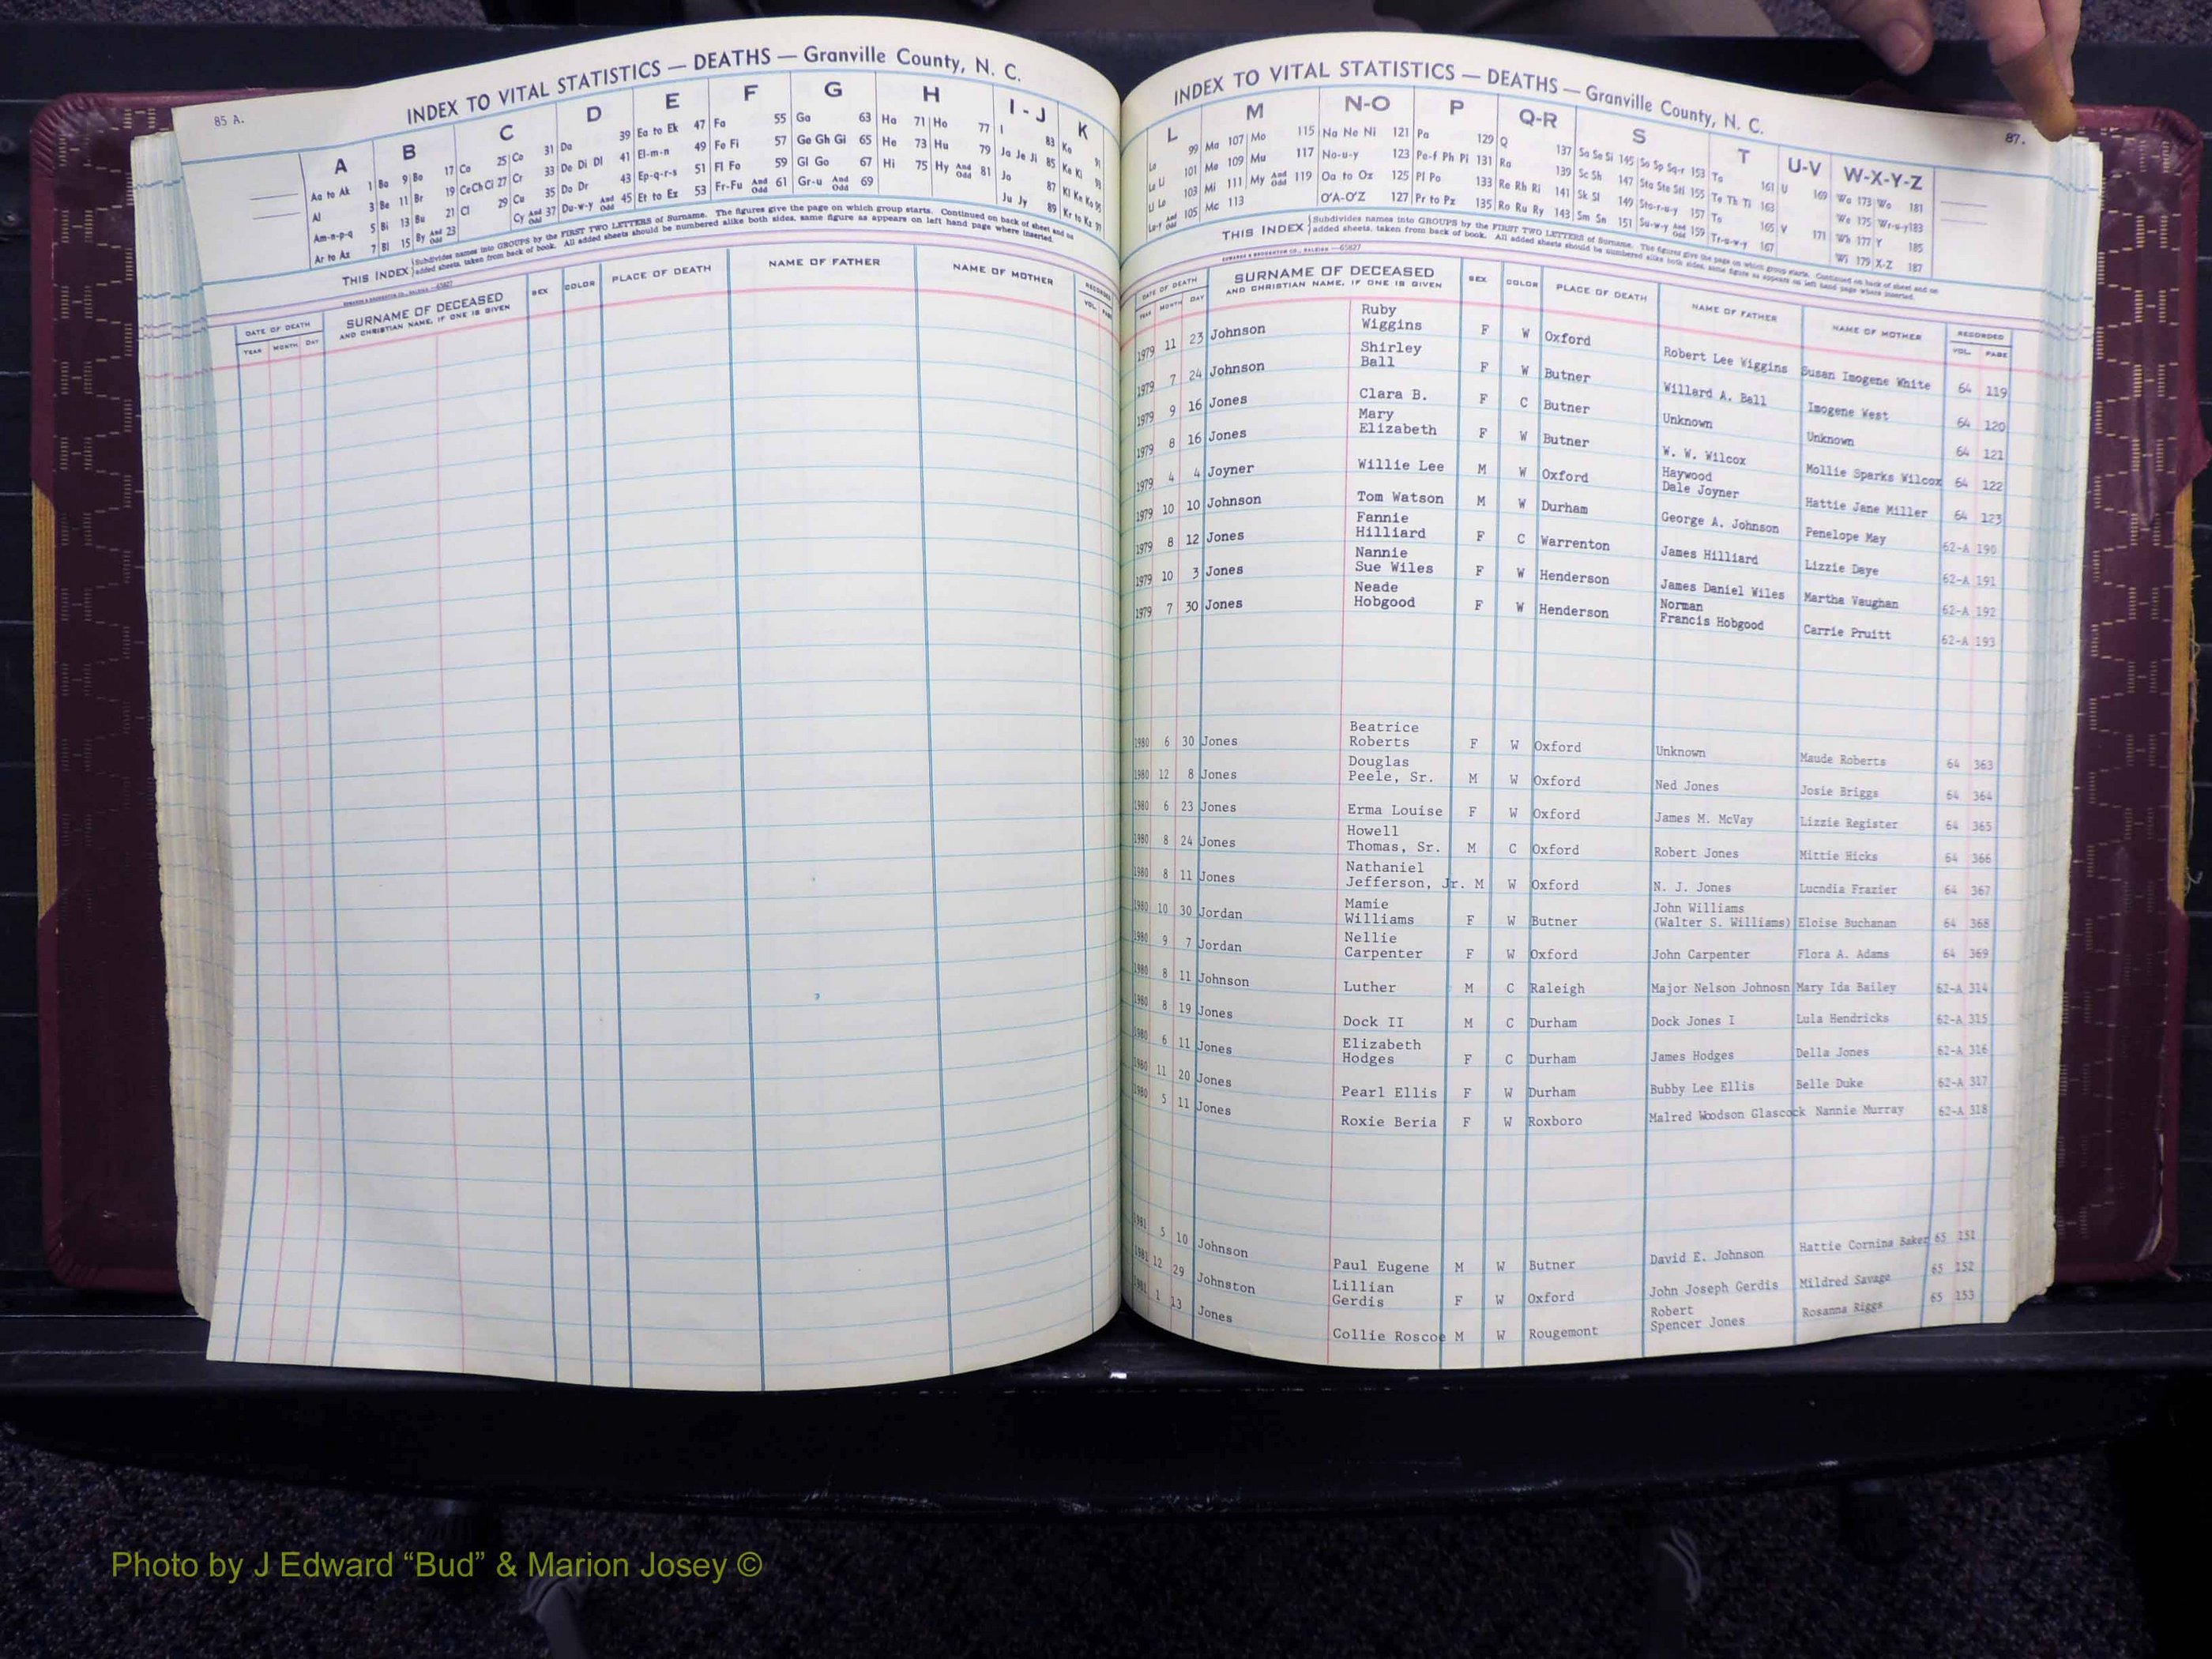 85 A.
INDEX TO VITAL STATISTICS — DEATHS — Granville County, N. C.
A B C D E F G H I - J K
Aa to Ak 1 Ba 9 Bo 17 Ca 25 Co 31 Da 39 Ea to Ek 47 Fa 55 Ga 63 Ha 71 Ho 77 I 83 Ka 91
Al 3 Be 11 Br 19 Ce Ch Ci 27 Cr 33 De Di Dl 41 El-m-n 49 Fe Fi 57 Ge Gh Gi 65 He 73 Hu 79 Ja Je Ji 85 Ke Ki 93
Am-n-p-q 5 Bi 13 Bu 21 Cl 29 Cu 35 Do Dr 43 Ep-q-r-s 51 Fl Fo 59 Gl Go 67 Hi 75 Hy And Odd 81 Jo 87 Kl Kn Ko 95
Ar to Az 7 Bl 15 By And Odd 23 Cy And Odd 37 Du-w-y And Odd 45 Et to Ez 53 Fr-Fu And Odd 61 Gr-u And Odd 69 Ju Jy 89 Kr to Kz 97
THIS INDEX Subdivides names into GROUPS by the FIRST TWO LETTERS of Surname. The figures give the page on which group starts. Continued on back of sheet and on
added sheets, taken from back of book. All added sheets should be numbered alike both sides, same figure as appears on left hand page where inserted.
DATE OF DEATH SURNAME OF DECEASED SEX COLOR PLACE OF DEATH NAME OF FATHER NAME OF MOTHER RECORDED
YEAR MONTH DAY AND CHRISTIAN NAME, IF ONE IS GIVEN VOL. PAGE
87.
INDEX TO VITAL STATISTICS — DEATHS — Granville County, N. C.
L M N-O P Q-R S T U-V W-X-Y-Z
La 99 Ma 107 Mo 115 Na Ne Ni 121 Pa 129 Q 137 Sa Se Si 145 So Sp Sq-r 153 Ta 161 U 169 Wa 173 Wo 181
Le Li 101 Me 109 Mu 117 No-u-y 123 Pe-f Ph Pi 131 Ra 139 Sc Sh 147 Sta Ste Sti 155 Te Th Ti 163 We 175 Wr-u-y 183
Ll Lo 103 Mi 111 My And Odd 119 Oa to Oz 125 Pl Po 133 Re Rh Ri 141 Sk Sl 149 Sto-r-u-y 157 To 165 V 171 Wh 177 Y 185
Lu-y And Odd 105 Mc 113 O'A-O'Z 127 Pr to Pz 135 Ro Ru Ry 143 Sm Sn 151 Su-w-y And Odd 159 Tr-u-w-y 167 Wi 179 X-Z 187
THIS INDEX Subdivides names into GROUPS by the FIRST TWO LETTERS of Surname. The figures give the page on which group starts. Continued on back of sheet and on
added sheets, taken from back of book. All added sheets should be numbered alike both sides, same figure as appears on left hand page where inserted.
DATE OF DEATH SURNAME OF DECEASED SEX COLOR PLACE OF DEATH NAME OF FATHER NAME OF MOTHER RECORDED
YEAR MONTH DAY AND CHRISTIAN NAME, IF ONE IS GIVEN VOL. PAGE
1979 11 23 Johnson Ruby Wiggins F W Oxford Robert Lee Wiggins Susan Imogene White 64 119
1979 7 24 Johnson Shirley Ball F W Butner Willard A. Ball Imogene West 64 120
1979 9 16 Jones Clara B. F C Butner Unknown Unknown 64 121
1979 8 16 Jones Mary Elizabeth F W Butner W. W. Wilcox Mollie Sparks Wilcox 64 122
1979 4 4 Joyner Willie Lee M W Oxford Haywood Dale Joyner Hattie Jane Miller 64 123
1979 10 10 Johnson Tom Watson M W Durham George A. Johnson Penelope May 62-A 190
1979 8 12 Jones Fannie Hilliard F C Warrenton James Hilliard Lizzie Daye 62-A 191
1979 10 3 Jones Nannie Sue Wiles F W Henderson James Daniel Wiles Martha Vaughan 62-A 192
1979 7 30 Jones Neade Hobgood F W Henderson Norman Francis Hobgood Carrie Pruitt 62-A 193
1980 6 30 Jones Beatrice Roberts F W Oxford Unknown Maude Roberts 64 363
1980 12 8 Jones Douglas Peele, Sr. M W Oxford Ned Jones Josie Briggs 64 364
1980 6 23 Jones Erma Louise F W Oxford James M. McVay Lizzie Register 64 365
1980 8 24 Jones Howell Thomas, Sr. M C Oxford Robert Jones Mittie Hicks 64 366
1980 8 11 Jones Nathaniel Jefferson, Jr. M W Oxford N. J. Jones Lucndia Frazier 64 367
1980 10 30 Jordan Mamie Williams F W Butner John Williams (Walter S. Williams) Eloise Buchanan 64 368
1980 9 7 Jordan Nellie Carpenter F W Oxford John Carpenter Flora A. Adams 64 369
1980 8 11 Johnson Luther M C Raleigh Major Nelson Johnosn Mary Ida Bailey 62-A 314
1980 8 19 Jones Dock II M C Durham Dock Jones I Lula Hendricks 62-A 315
1980 6 11 Jones Elizabeth Hodges F C Durham James Hodges Della Jones 62-A 316
1980 11 20 Jones Pearl Ellis F W Durham Bubby Lee Ellis Belle Duke 62-A 317
1980 5 11 Jones Roxie Beria F W Roxboro Malred Woodson Glascock Nannie Murray 62-A 318
1981 5 10 Johnson Paul Eugene M W Butner David E. Johnson Hattie Cornina Baker 65 151
1981 12 29 Johnston Lillian Gerdis F W Oxford John Joseph Gerdis Mildred Savage 65 152
1981 1 13 Jones Collie Roscoe M W Rougemont Robert Spencer Jones Rosanna Riggs 65 153
Photo by J Edward “Bud” & Marion Josey ©